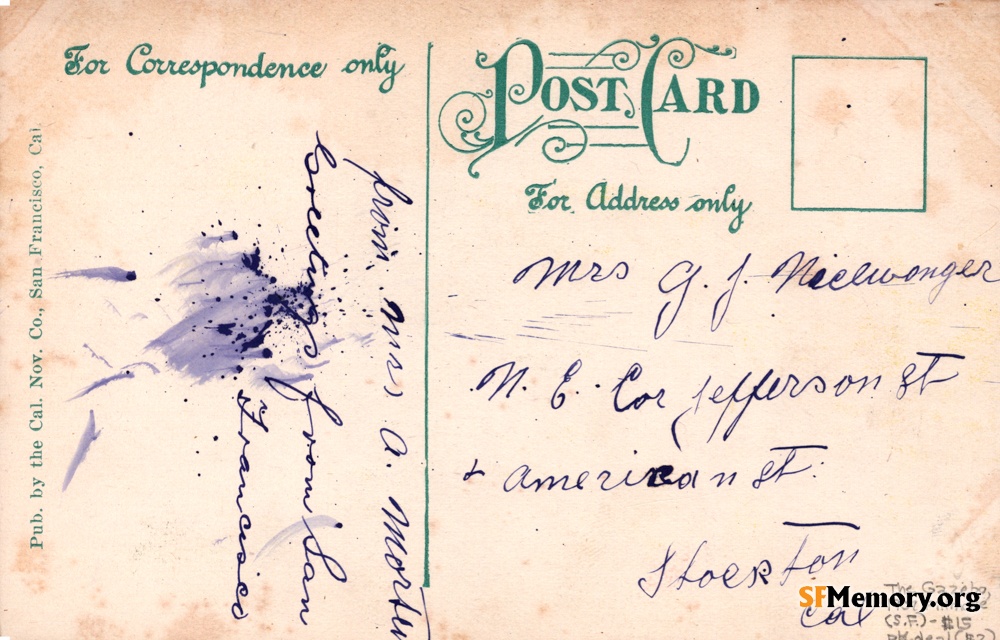 For Correspondence only
POST CARD
For Address only
Pub. by the Cal. Nov. Co., San Francisco, Cal
from Mrs A. Morton
Greetings from San
Francisco
Mrs G. J.
N. E. Cor Jefferson St
+ American St.
Stockton
Cal
SFMemory.org
(S.F.) - $15